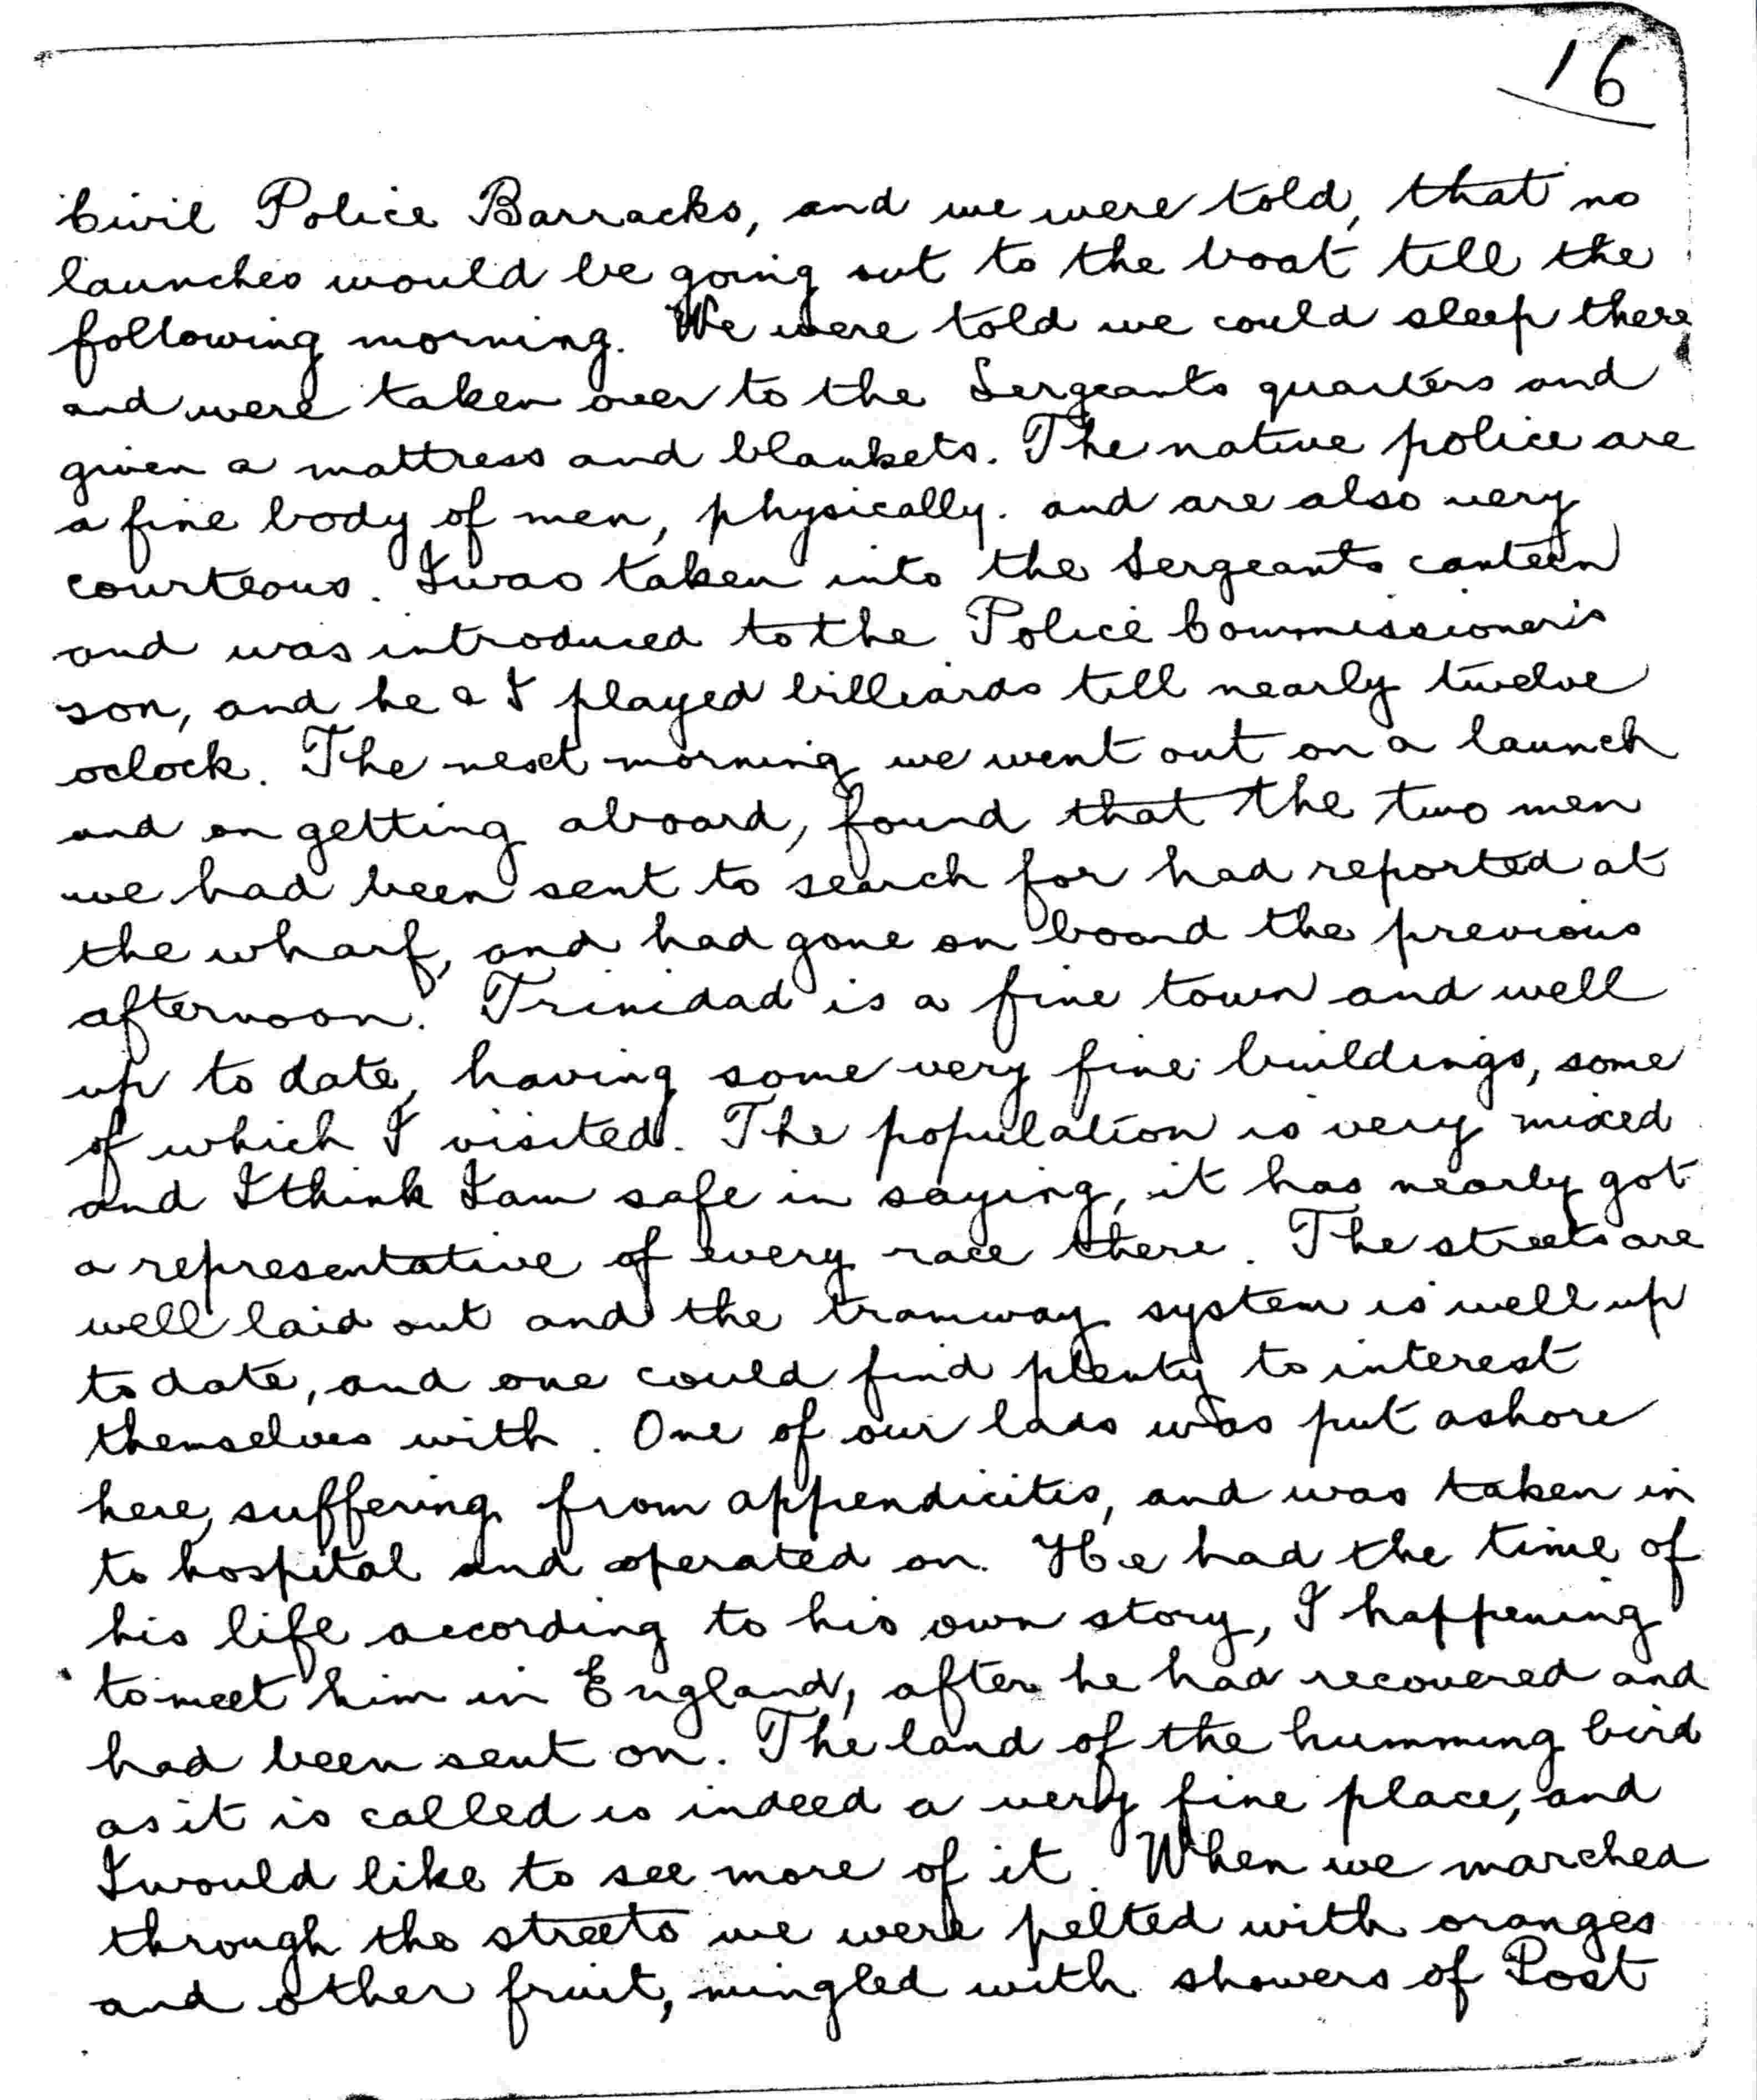 16
Civil Police Barracks, and we were told, that no
launches would be going out to the boat till the
following morning. We were told we could sleep there
and were taken over to the Sergeants quarters and
given a mattress and blankets. The native police are
a fine body of men, physically. and are also very
courteous. I was taken into the Sergeants canteen
and was introduced to the Police Commissioner's
son, and he & I played billiards till nearly twelve
oclock. The next morning we went out on a launch
and on getting aboard, found that the two men
we had been sent to search for had reported at
the wharf, and had gone on board the previous
afternoon. Trinidad is a fine town and well
up to date, having some very fine buildings, some
of which I visited. The population is very mixed
and I think I am safe in saying, it has nearly got
a representative of every race there. The streets are
well laid out and the tramway system is well up
to date, and one could find plenty to interest
themselves with. One of our lads was put ashore
here, suffering from appendicitis, and was taken in
to hospital and operated on. He had the time of
his life according to his own story, I happening
to meet him in England, after he had recovered and
had been sent on. The land of the humming bird
as it is called is indeed a very fine place, and
I would like to see more of it. When we marched
through the streets we were pelted with oranges
and other fruit, mingled with showers of Post